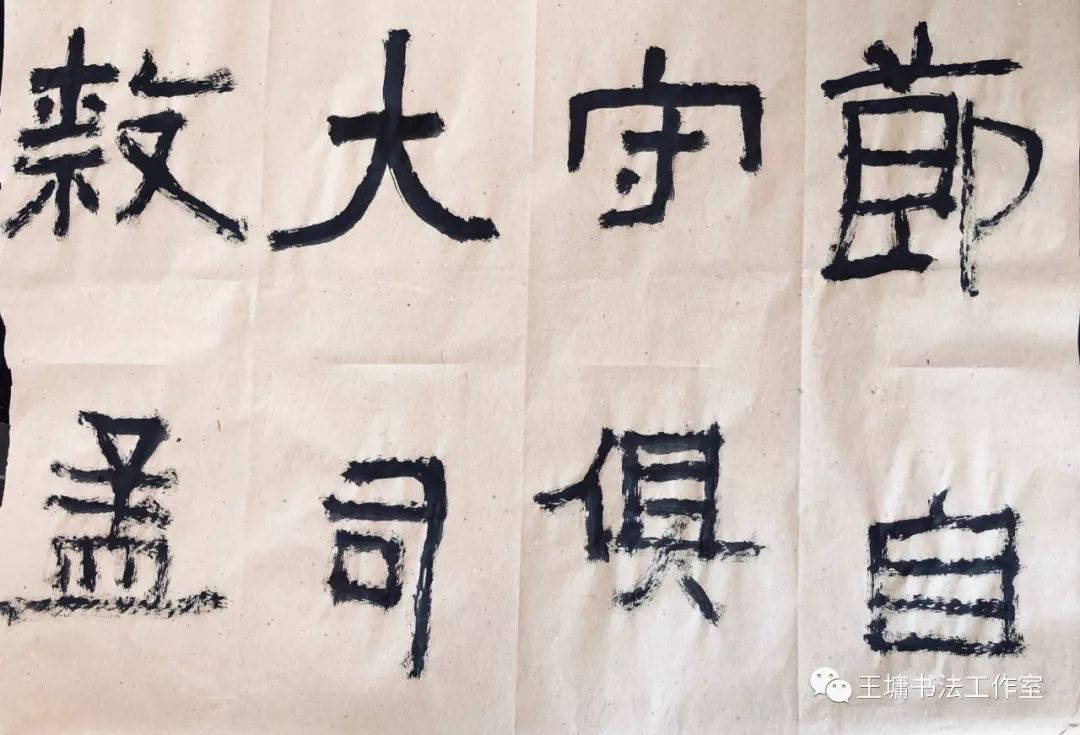 節自
守俱
大司
孟
王墉书法工作室